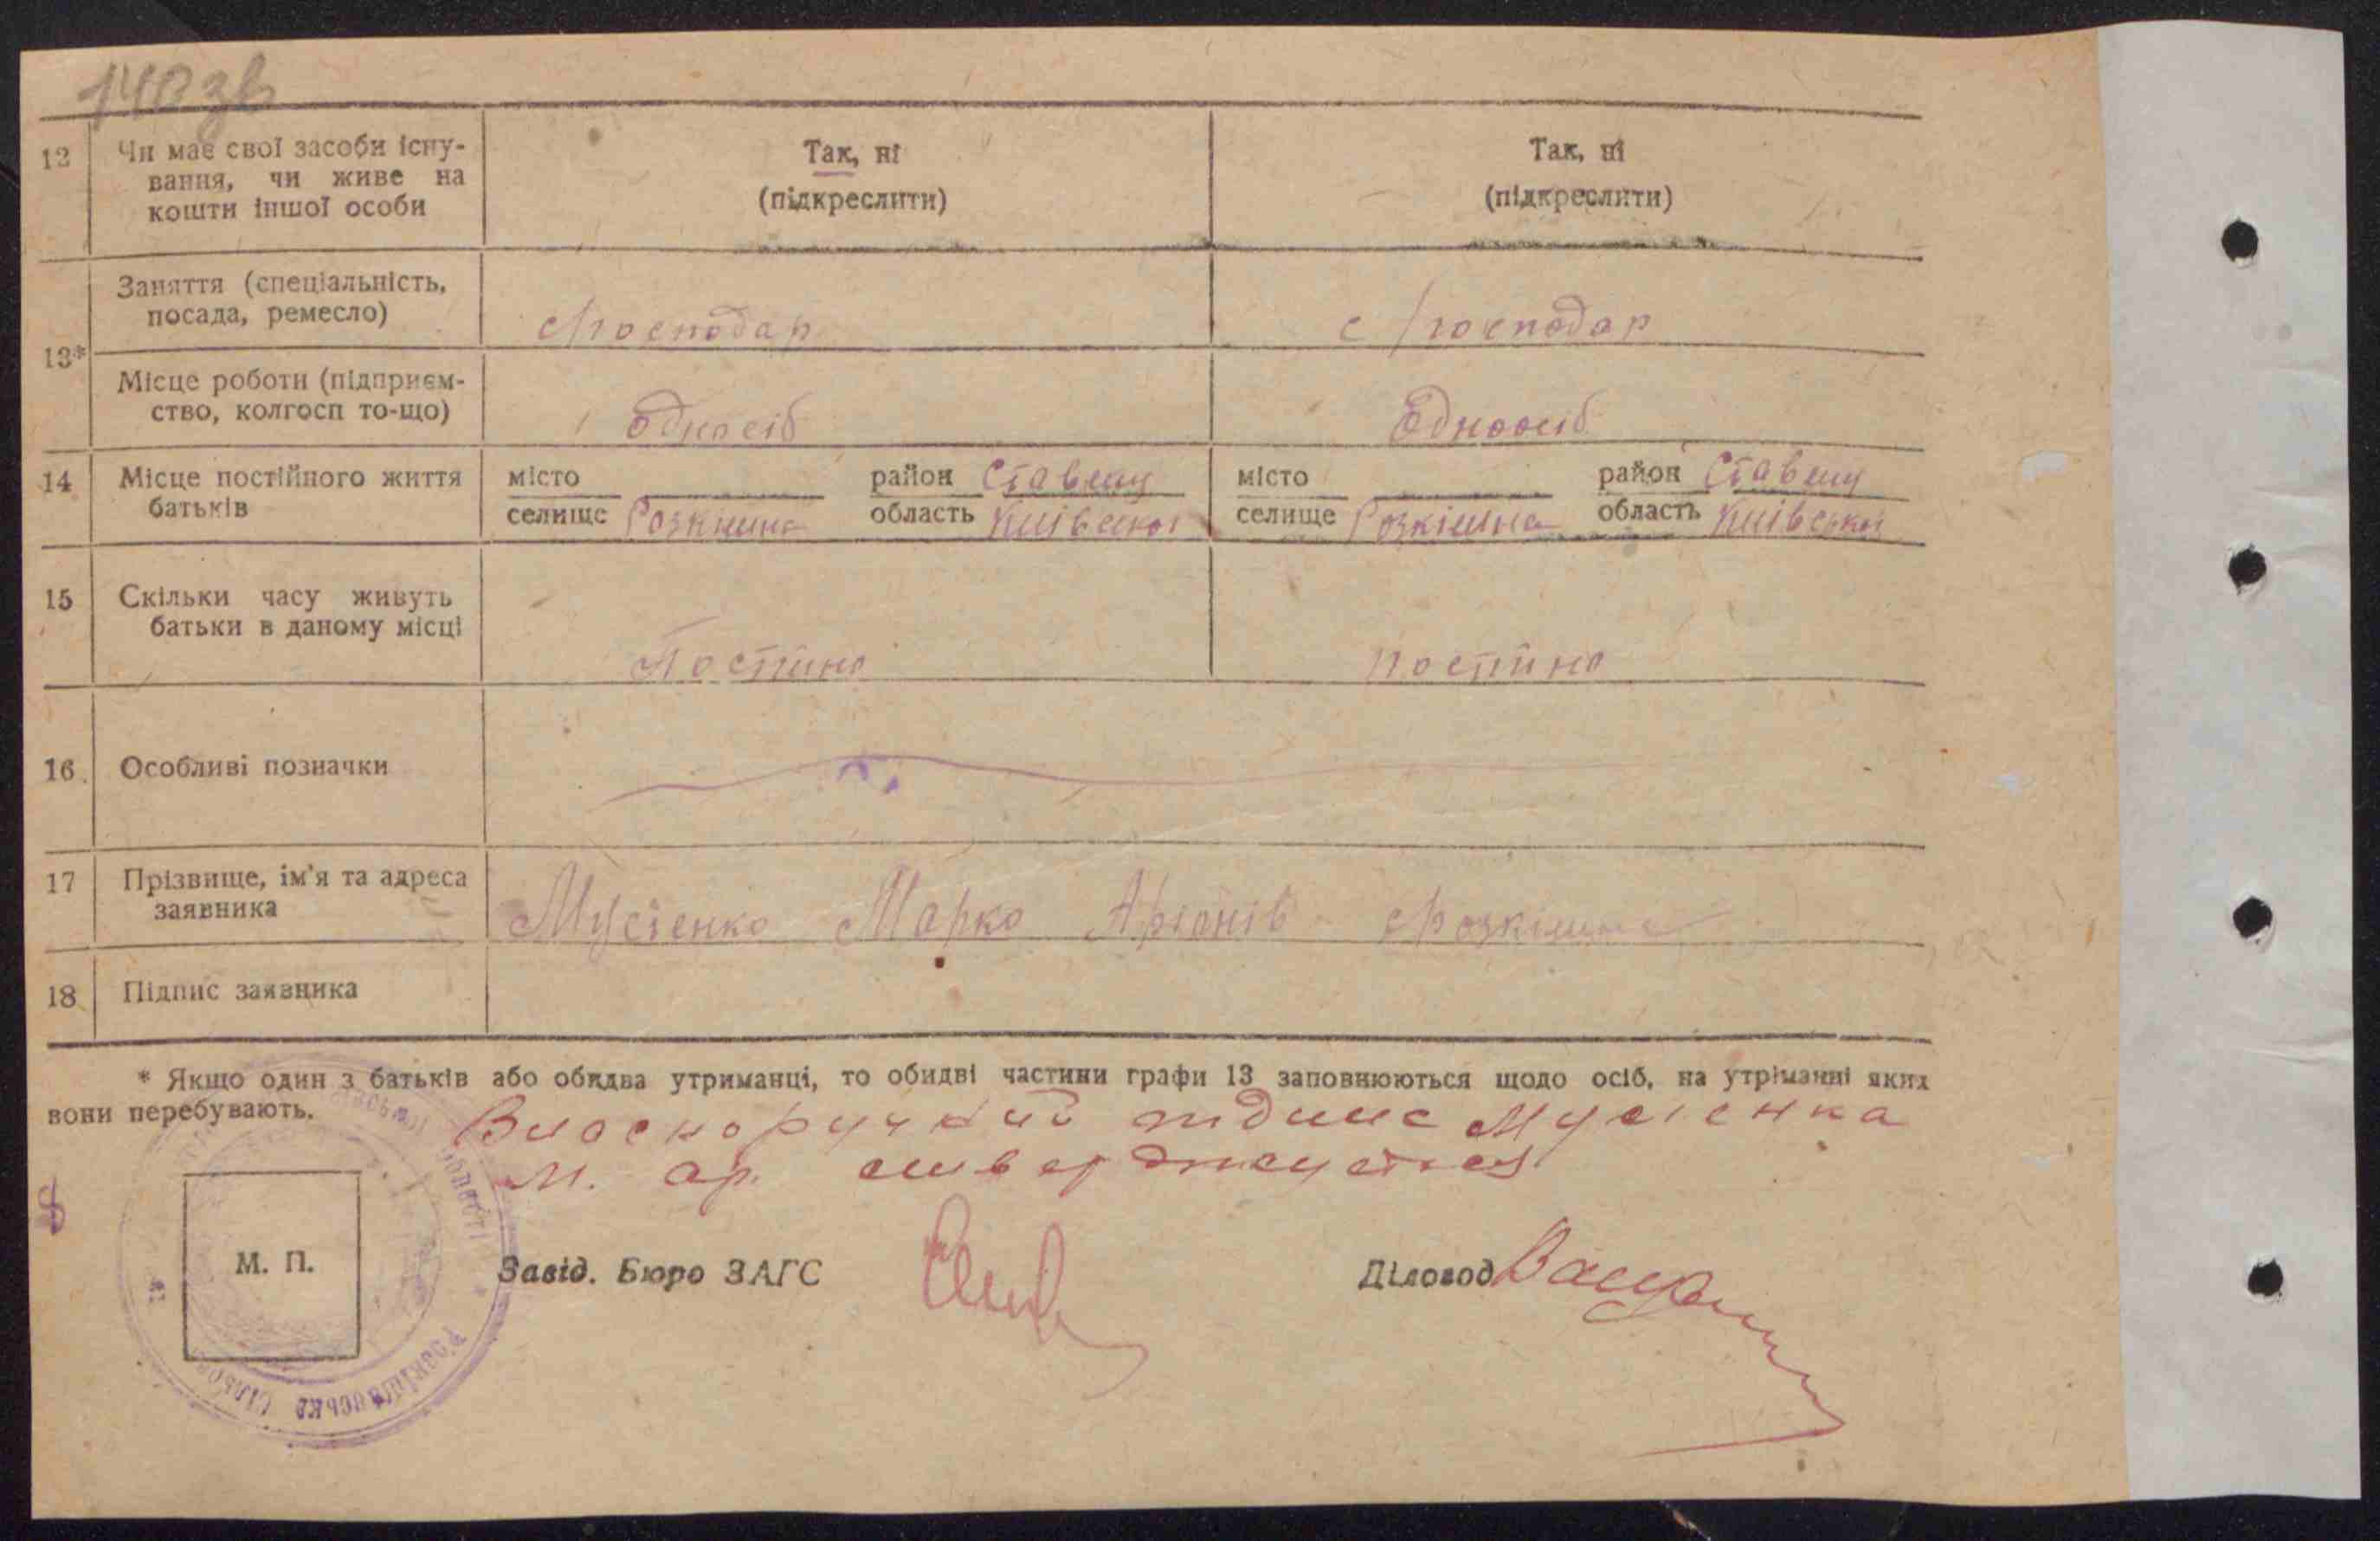 140 зв
12 Чи має свої засоби існу-
вання, чи живе на
кошти іншої особи
Так, ні
(підкреслити)
Так, ні
(підкреслити)
13*
Заняття (спеціальність,
посада, ремесло)
с/господар
с/господар
Місце роботи (підприєм-
ство, колгосп то-що)
Односіб
Одноосіб
14 Місце постійного життя
батьків
місто район Ставищ
селище Розкішна область Київської
місто район Ставищ
селище Розкішна область Київської
15 Скільки часу живуть
батьки в даному місці
Постійно
постійно
16. Особливі позначки
17 Прізвище, ім'я та адреса
заявника
Мусієнко Марко Розкішна
18. Підпис заявника
* Якщо один з батьків або обидва утриманці, то обидві частини графи 13 заповнюються щодо осіб, на утріманні яких
вони перебувають.
Власноручний підпис Мусієнка
М. Ар. стверджується
М. П.
Завід. Бюро ЗАГС
Діловод
Розкішнянська сільс